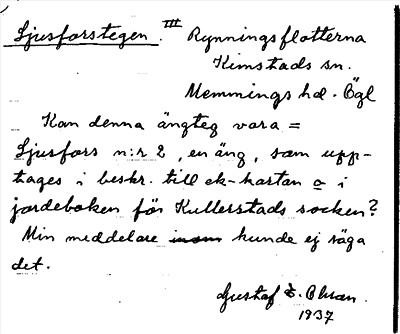 Ljusforstegen. III Rynningsflotterna
Kimstads sn.
Memmings hd. Ögl
Kan denna ängteg vara =
Ljusfors n:r 2, en äng, som upp-
tages i beskr. till ek-kartan o i
jordeboken för Kullerstads socken?
Min meddelare inom kunde ej säga
det.
Gustaf E. Olson.
1937